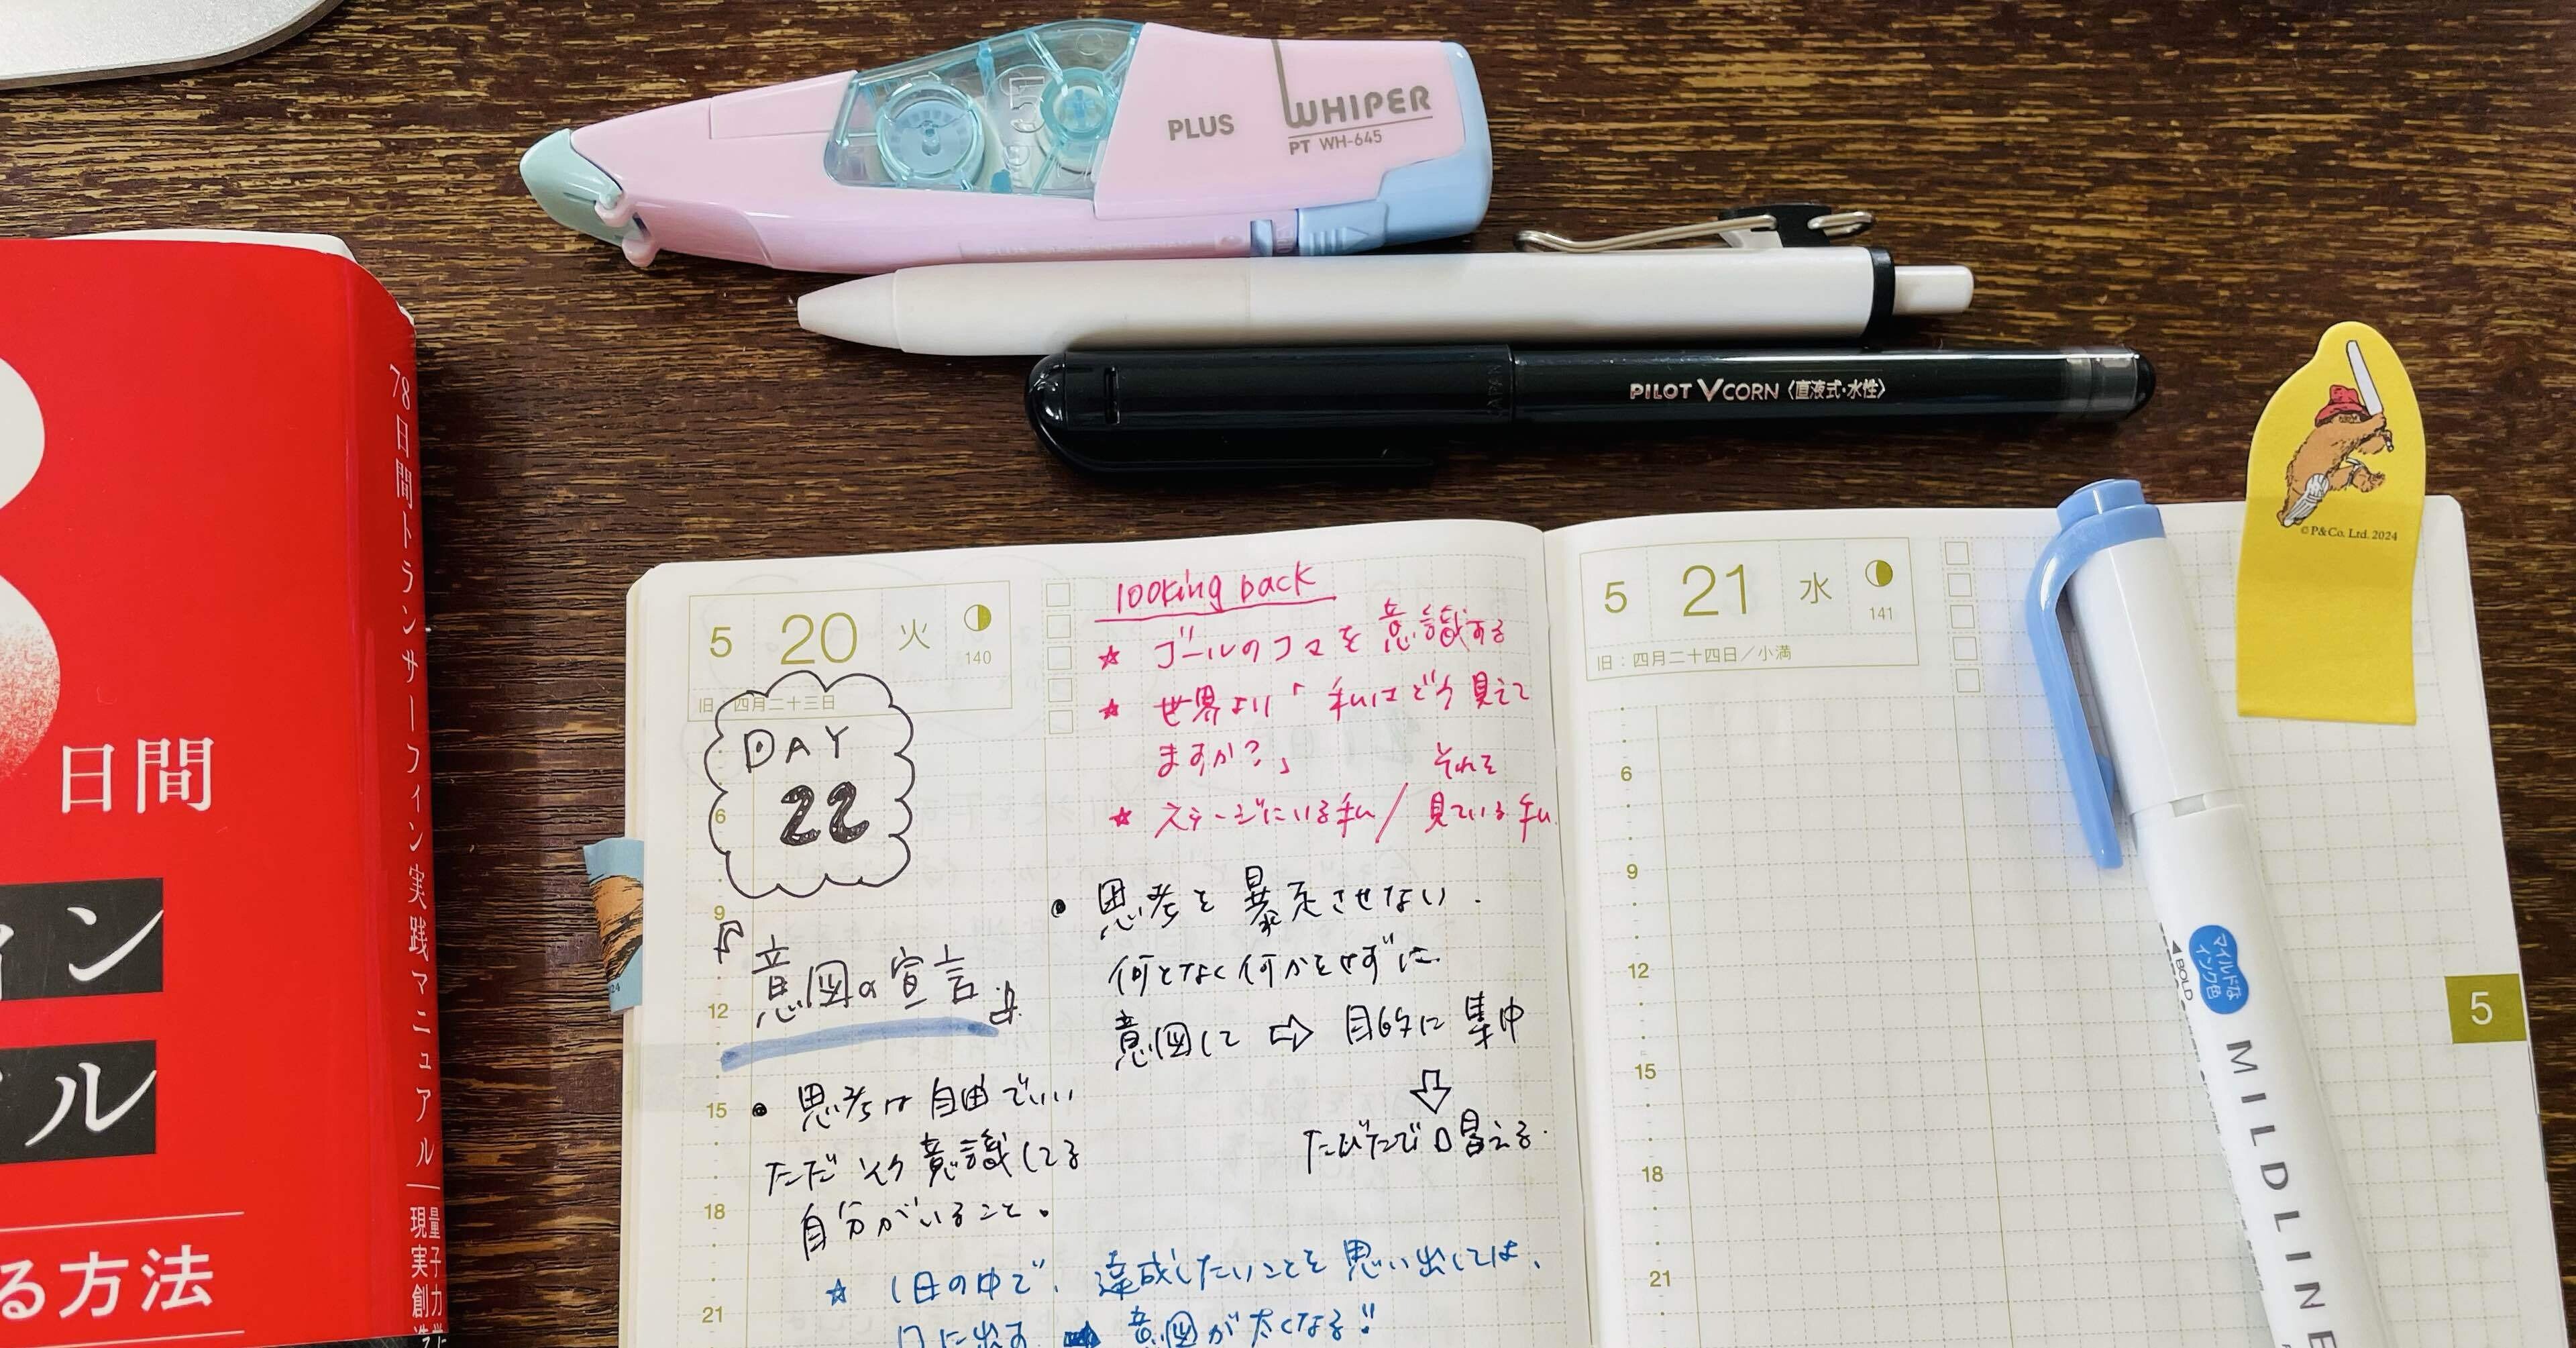 PLUS WHIPER
PT WH-645
PILOT VCORN〈直液式・水性〉
© P&Co. Ltd. 2024
78日間トランサーフィン実践マニュアル
量子力学
現実創造
日間
ン
ル
る方法
5 20 火
140
旧:四月二十三日
DAY
22
6
9
12
15
18
21
意図の宣言
• 思考は自由でいい
ただ いく意識してる
自分がいること。
☆ 1日の中で、達成したいことを思い出しては、
口に出す ➡ 意図が太くなる!!
looking back
☆ ゴールのコマを意識する
☆ 世界より「私はどう見えて
ますか?」
☆ ステージにいる私/それを見ている私
• 思考を暴走させない.
何となく何かをせずに.
意図して ⇨ 目的に集中
⇩
たびたび口唱える.
5 21 水
141
旧:四月二十四日/小満
6
9
12
15
18
21
5
マイルドな
インク色
BOLD
MILDLINE